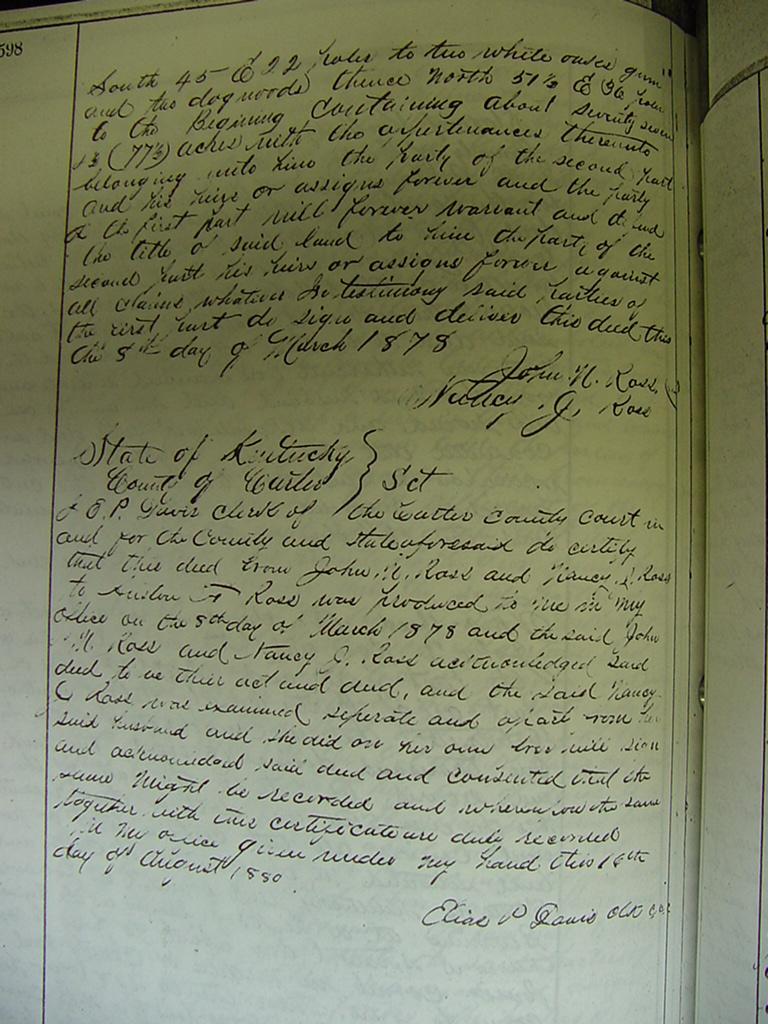 598
South 45 E 22 poles to two white oakes gum
and two dogwoods thence North 51½ E 36 poles
to the Begining Containing about seventy seven
½ (77½) acres with the appertenances thereunto
belonging unto him the party of the second part
and his heirs or assigns forever and the party
of the first part will forever warrant and defend
the title of said land to him the party of the
second part his heirs or assigns forever against
all claims whatever In testimony said parties of
the first part do sign and deliver this deed this
the 8th day of March 1878
John N. Ross
Nancy J. Ross
State of Kentucky
County of Carter } Sct
I E. P. Davis Clerk of the Carter County Court in
and for the County and state aforesaid do certify
that this deed from John N. Ross and Nancy J. Ross
to Ross was produced to me in my
office on the 8th day of March 1878 and the said John
N. Ross and Nancy J. Ross acknowledged said
deed to be their act and deed, and the said Nancy
J Ross was examined seperate and apart from her
said husband and she did on her own free will sign
and acknowledged said deed and consented that the
same might be recorded and whereupon the same
together with this certificate are duly recorded
in my office given under my hand this 18th
day of August 1880
Elias P Davis Clk